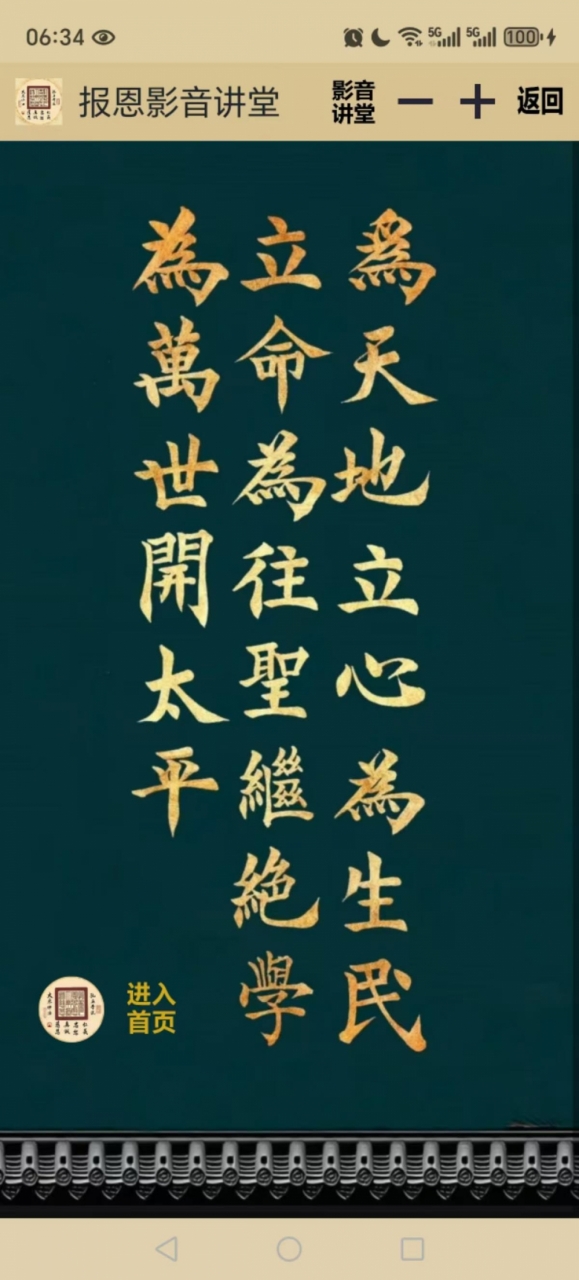 06:34
5G
5G
100
报恩影音讲堂
影音
讲堂
返回
爲天地立心為生民
立命為往聖繼絶學
為萬世開太平
进入
首页